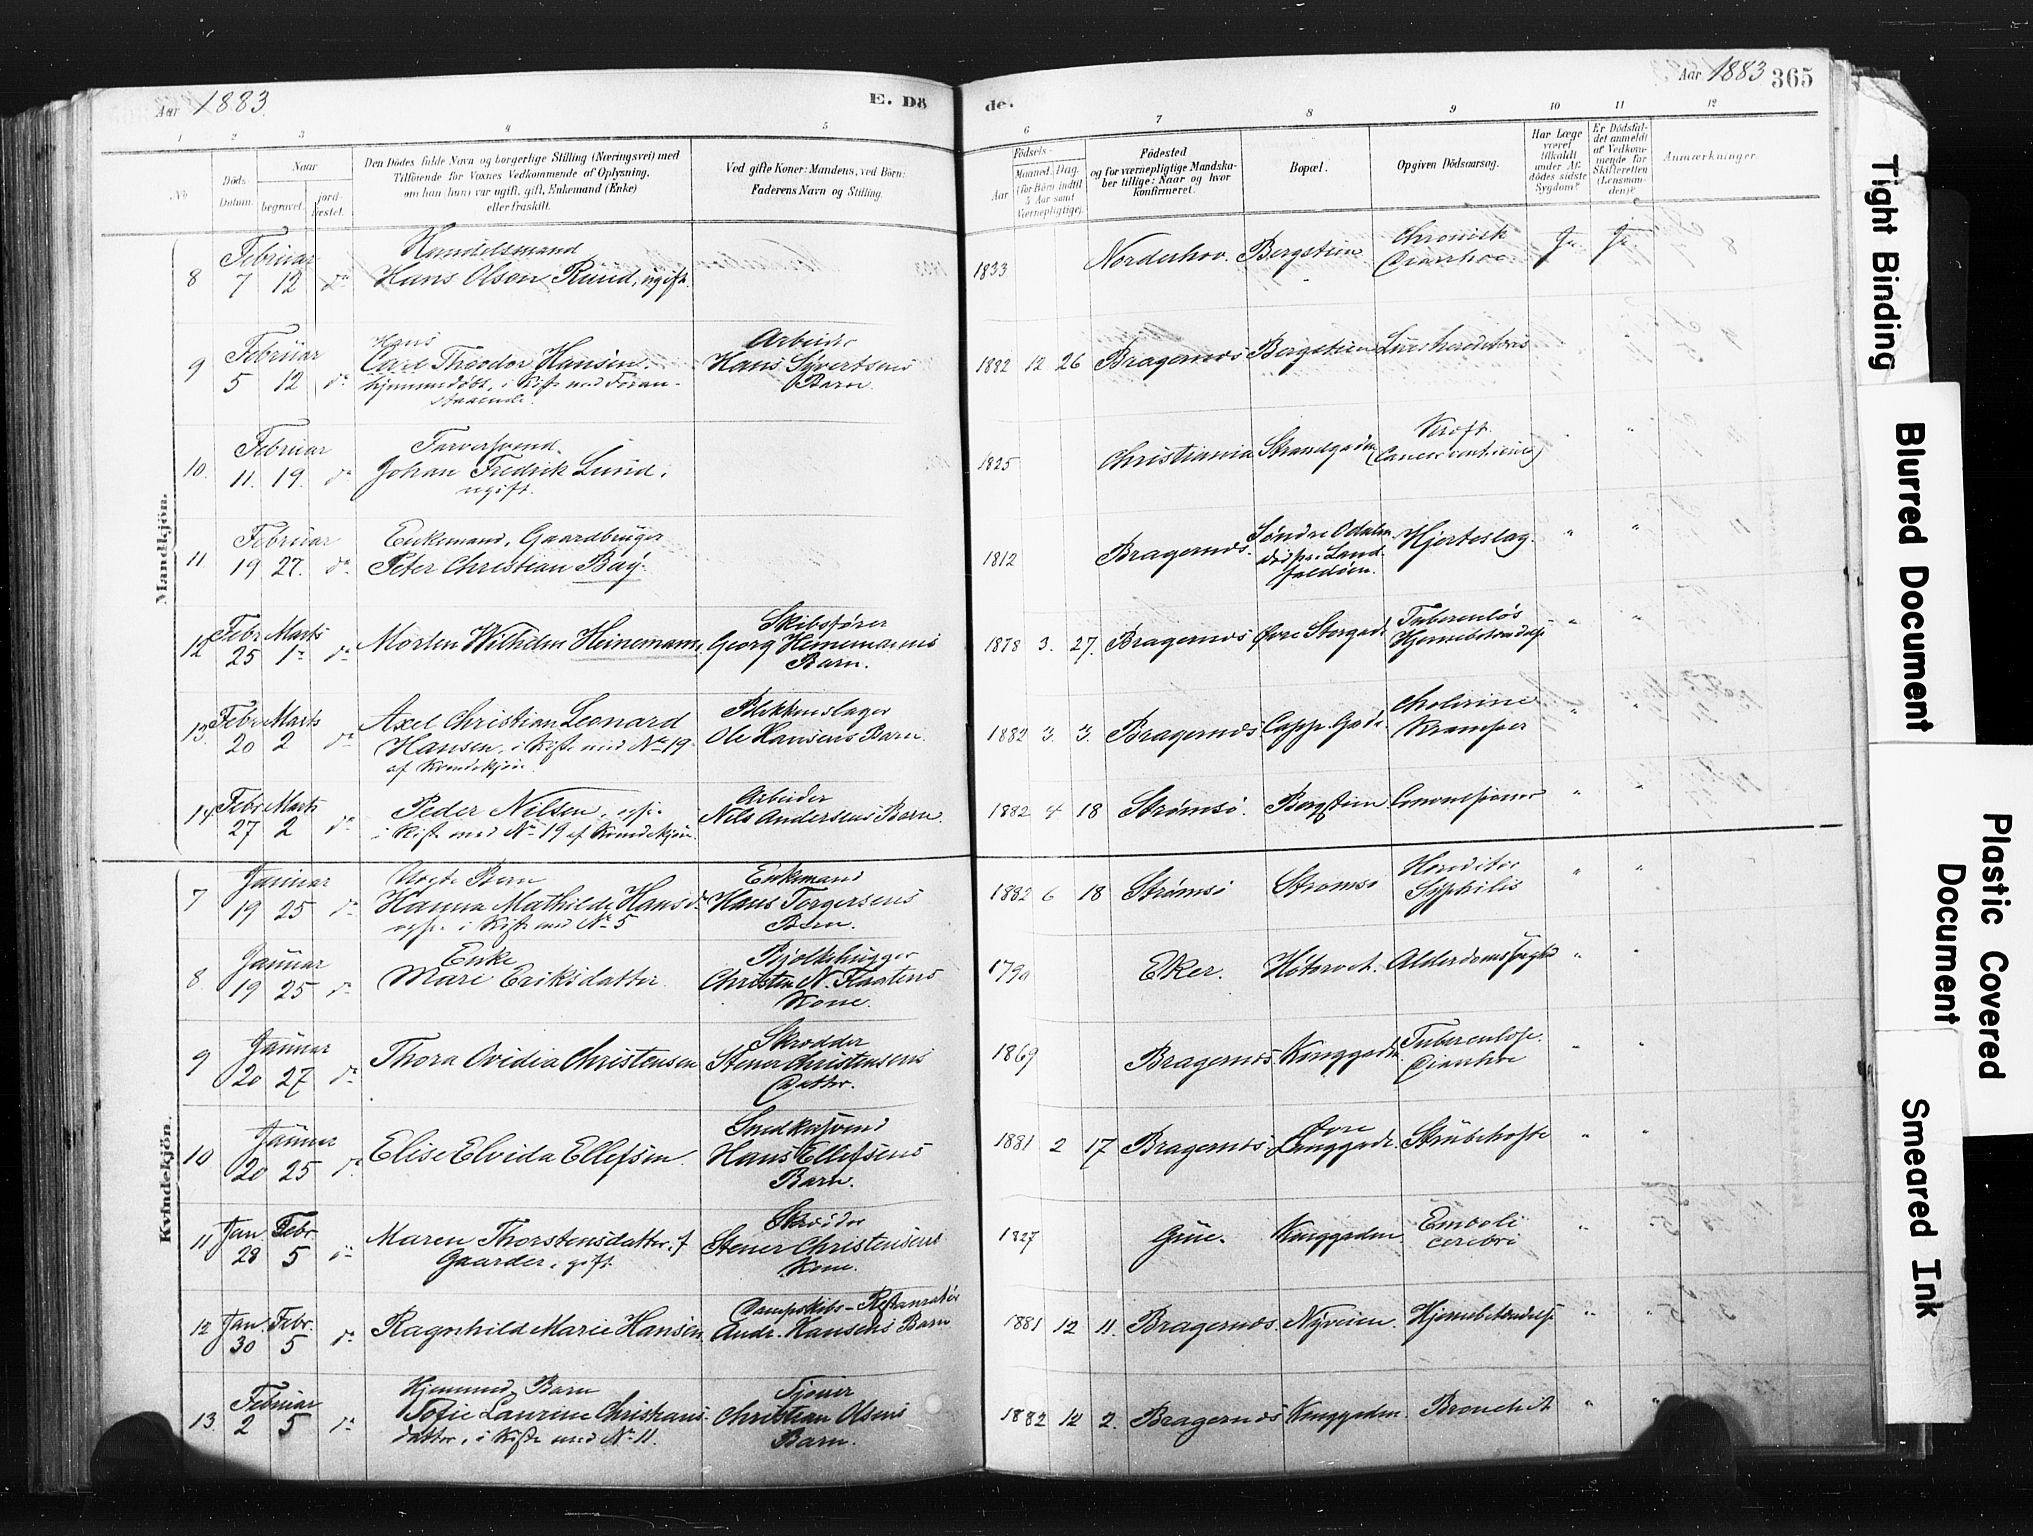 Aar 1883.
E. Dø
de.
Aar 1883 365
1 2 3 4 5 6 7 8 9 10 11 12
No
Døds-Datum.
Naar
begravet.
jord-fæstet.
Den Dødes fulde Navn og borgerlige Stilling (Næringsvei) med
Tilføiende for Voxnes Vedkommende af Oplysning,
om han (hun) var ugift, gift, Enkemand (Enke)
eller fraskilt.
Ved gifte Koner: Mandens, ved Børn:
Faderens Navn og Stilling.
Fødsels-
Aar
Maaned. Dag.
(for Børn indtil
5 Aar samt
Værnepligtige).
Fødested
og for værnepligtige Mandska-
ber tillige: Naar og hvor
konfirmeret.
Bopæl.
Opgiven Dødsaarsag.
Har Læge
været
tilkaldt
under Af-
dødes sidste
Sygdom?
Er Dødsfal-
det anmeldt
af Vedkom-
mende for
Skifteretten
(Lensman-
den)?
Anmærkninger.
Mandkjön.
8 Februar 7 12 do
Handelsmand
Hans Olsen Ruud, ugift.
1833 Norderhov. Bergstien Chronisk
Diarrhoe. Ja Ja
9 Februar 5 12 do
Hans
Carl Theodor Hansen.
hjemmedöbt, i Kiste med Foran-
staaende.
Arbeider
Hans Sivertsens
Barn
1882 12 26 Bragernæs Bergstien
10. Februar 11. 19. do
Farversvend
Johan Fredrik Lund.
ugift.
1825 Christiania Strandgaden Kræft
(Cancer ventriculi)
11 Februar 19 27. do
Enkemand, Gaardbruger
Peter Christian Bay.
1812 Bragernæs. Søndre Odalen
Land-
faldöen. Hjerteslag. " "
12 Febr 25 Marts 1 do
Morten Wilhelm Heinemann,
Skibsfører
Georg Heinemanns
Barn.
1878 3. 27. Bragernæs Øvre Storgade Tuberculös
Hjernebetændelse " "
13. Febr 20 Marts 2 do
Axel Christian Leonard
Hansen, i Kiste med No 19
af Kvindekjön.
Blikkenslager
Ole Hansens Barn.
1882 3. 3. Bragernæs Capp. Gade. Cholerine
Kramper " "
14 Febr 27 Marts 2 do
Peder Nilsen,
i Kiste med No 19 af Kvindekjön.
Arbeider
Nils Andersens Barn.
1882 4 18 Strømsö. Bergstien. Convulsioner " "
Kvindekjön.
7 Januar 19 25 do
Uægte Barn
Hanna Mathilde Hansdr
i Kiste med No 5
Enkemand
Hans Torgersens
Barn.
1882 6 18 Strømsö Strømsö Hereditær
Syphilis " "
8. Januar 19 25 do
Enke
Mari Eriksdatter.
Christen N. Flaatens
Kone.
Eker. Alderdomssvaghed " "
9 Januar 20 27 do
Thora Ovidia Christensen
Skrædder
Stener Christensens
Datter.
1869 Bragernæs. Konggaden. Tuberculose.
Diarrhoe " "
10 Januar 20 25 do
Elise Elvida Ellefsen.
Snedkersvend
Hans Ellefsens
Barn.
1881 2 17 Bragernæs Øvre
Langgade. Strubehoste " "
11 Jan. 28 Febr. 5 do
Maren Thorstensdatter, f
Gaarder, gift.
Skrædder
Stener Christensens
Kone.
1827 Grue. Konggaden. Emboli
cerebri " "
12 Jan. 30 Febr. 5 do
Ragnhild Marie Hansen,
Dampskibs-Restauratör
Andr. Hansens Barn
1881 12 11. Bragernæs. Nyveien. Hjernebetændelse " "
13. Februar 2 5 do
Hjemmed. Barn
Sofie Laurine Christians-
datter, i Kiste med No 11.
Christian Olsens
Barn.
1882 12 2. Bragernæs Konggaden. Bronchit " "
Tight Binding
Blurred Document
Plastic Covered
Document
Smeared Ink